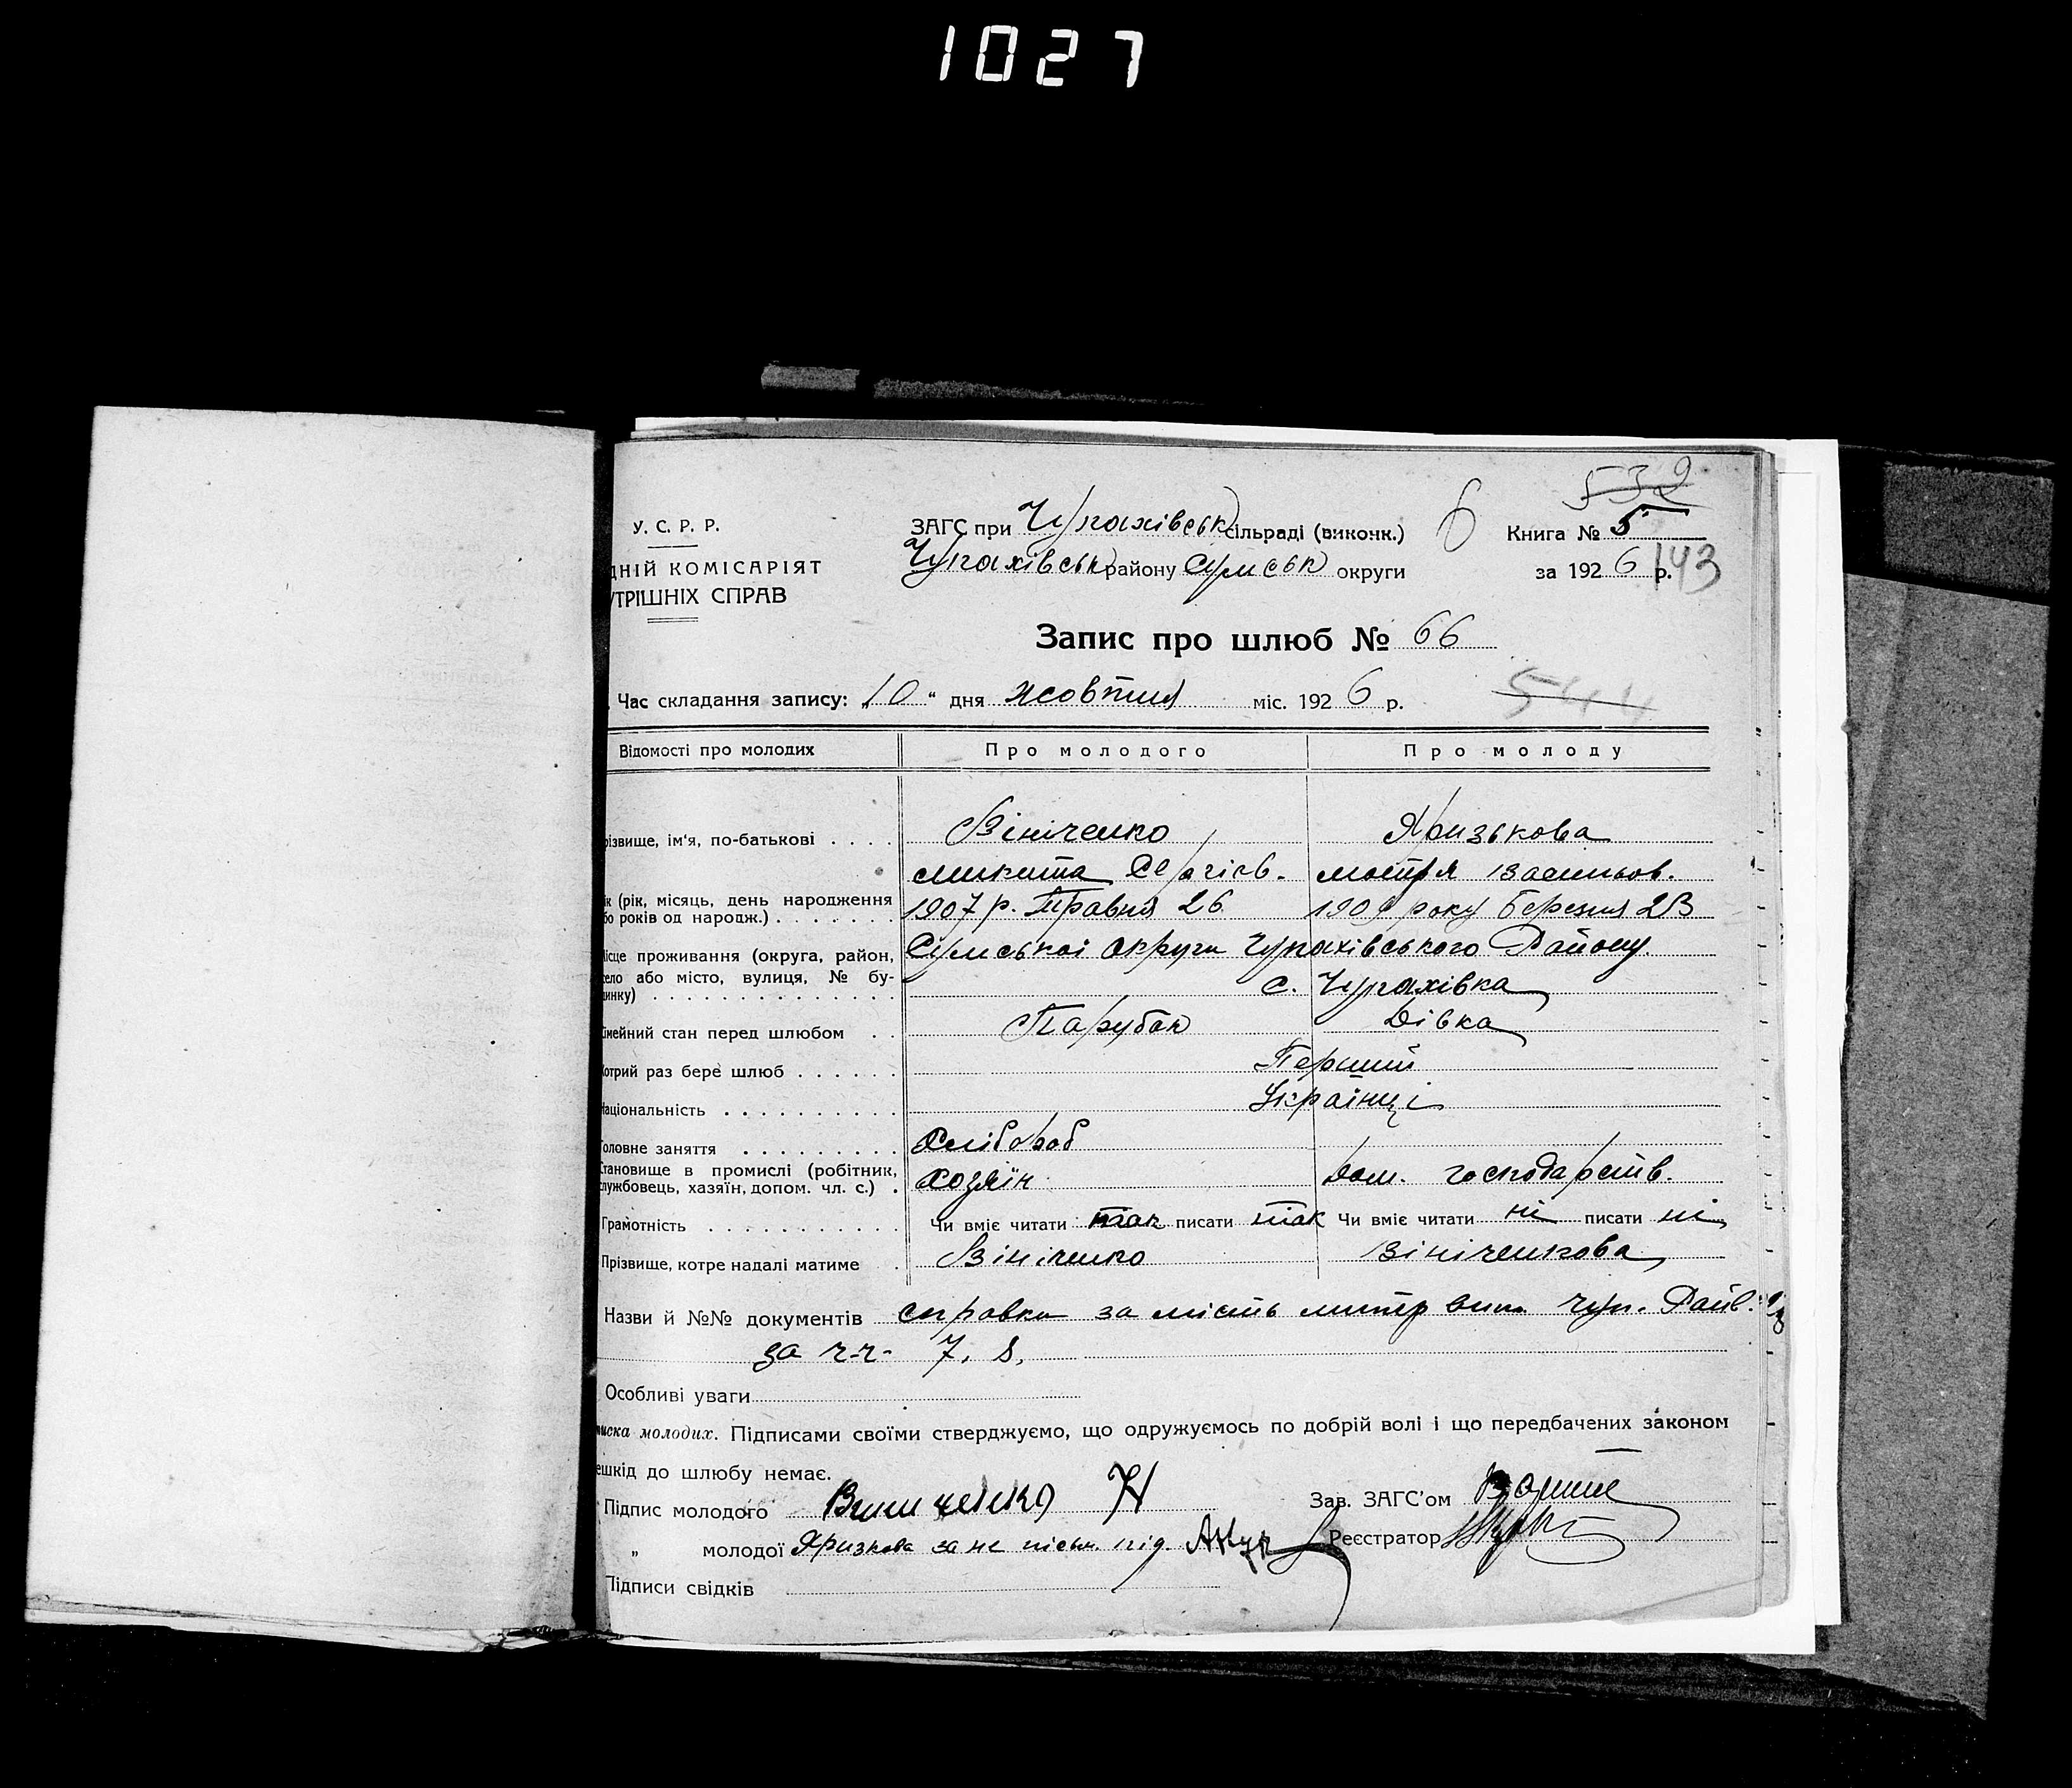 1027
532
У. С. Р. Р.
ЗАГС при Чупахівськ сільраді (виконк.) 6 Книга № 5
ДНІЙ КОМІСАРІЯТ Чупахівськ району Сумськ округи за 1926 р. 143
УТРІШНІХ СПРАВ
Запис про шлюб № 66
Час складання запису: „10“ дня жовтня міс. 1926 р. 544
Відомості про молодих Про молодого Про молоду
різвище, ім'я, по-батькові . . . . Вініченко Яризькова
микита Сергієв. мотря Васильов.
ік (рік, місяць, день народження 1907 р. Травня 26 року березня 23
бо років од народж.) . . . . . . .
ісце проживання (округа, район, Сумської округи Чупахівського Району.
село або місто, вулиця, № бу-
инку) . . . . . . . . . . . . . . с. Чупахівка
імейний стан перед шлюбом . . Парубок Дівка
отрий раз бере шлюб . . . . . . Перший
аціональність . . . . . . . . . . Українці
Головне заняття . . . . . . . . . Хлібороб
Становище в промислі (робітник,
службовець, хазяїн, допом. чл. с.) . хозяїн Дом. господарств.
Грамотність . . . . . . . . . . . Чи вміє читати так писати так Чи вміє читати ні писати ні
Прізвище, котре надалі матиме . Вініченко Вініченкова
Назви й №№ документів справки за мість метр вип. Чуп. Райв.
за ч.ч. 7, 8,
Особливі уваги
иска молодих. Підписами своїми стверджуємо, що одружуємось по добрій волі і що передбачених законом
ешкід до шлюбу немає.
Підпис молодого Виниченко Н Зав. ЗАГС'ом
„ молодої Яризкова за не письм. під. Реєстратор
Підписи свідків